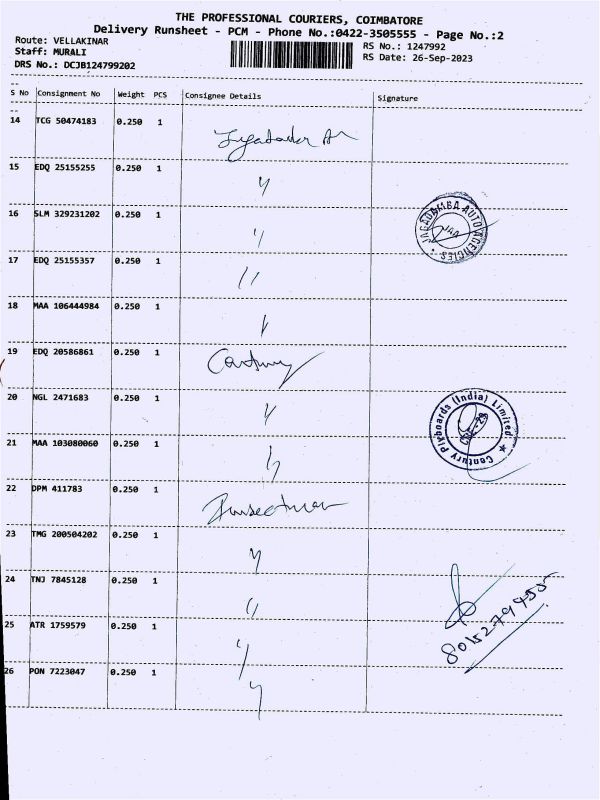 THE PROFESSIONAL COURIERS, COIMBATORE
Delivery Runsheet - PCM - Phone No.:0422-3505555 - Page No.:2
Route: VELLAKINAR
RS No.: 1247992
Staff: MURALI
RS Date: 26-Sep-2023
DRS No.: DCJB124799202
S No Consignment No Weight PCS Consignee Details Signature
14 TCG 50474183 0.250 1
15 EDQ 25155255 0.250 1 "
JAGADAMBA AUTO AGENCIES
16 SLM 329231202 0.250 1 "
17 EDQ 25155357 0.250 1 "
18 MAA 106444984 0.250 1 "
19 EDQ 20586861 0.250 1 Century
20 NGL 2471683 0.250 1 "
Century Plyboards (India) Limited
21 MAA 103080060 0.250 1 "
22 DPM 411783 0.250 1
23 TMG 200504202 0.250 1 "
24 TNJ 7845128 0.250 1 "
25 ATR 1759579 0.250 1 "
8015279455
26 PON 7223047 0.250 1 "